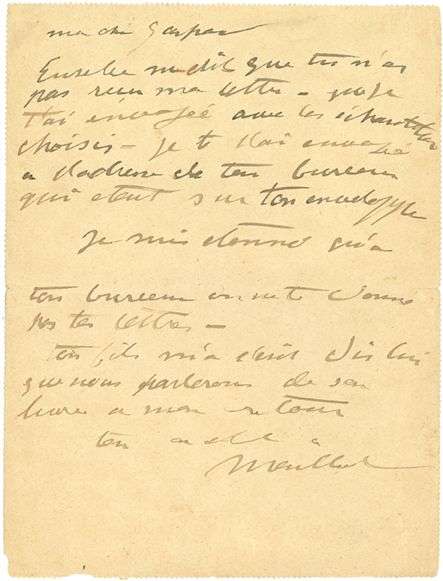 Eusebe me dit que tu n'as
pas recu ma lettre - que je
t'ai envoyée avec les échantillons
choisis - je te l'ai envoyé
a l'adresse de ton bureau
qui etait sur ton enveloppe
je suis etonné qu'a
ton bureau on ne te donne
pas tes lettres -
ton fils m'a écrit Dis lui
que nous parlerons de son
livre a mon retour
ton